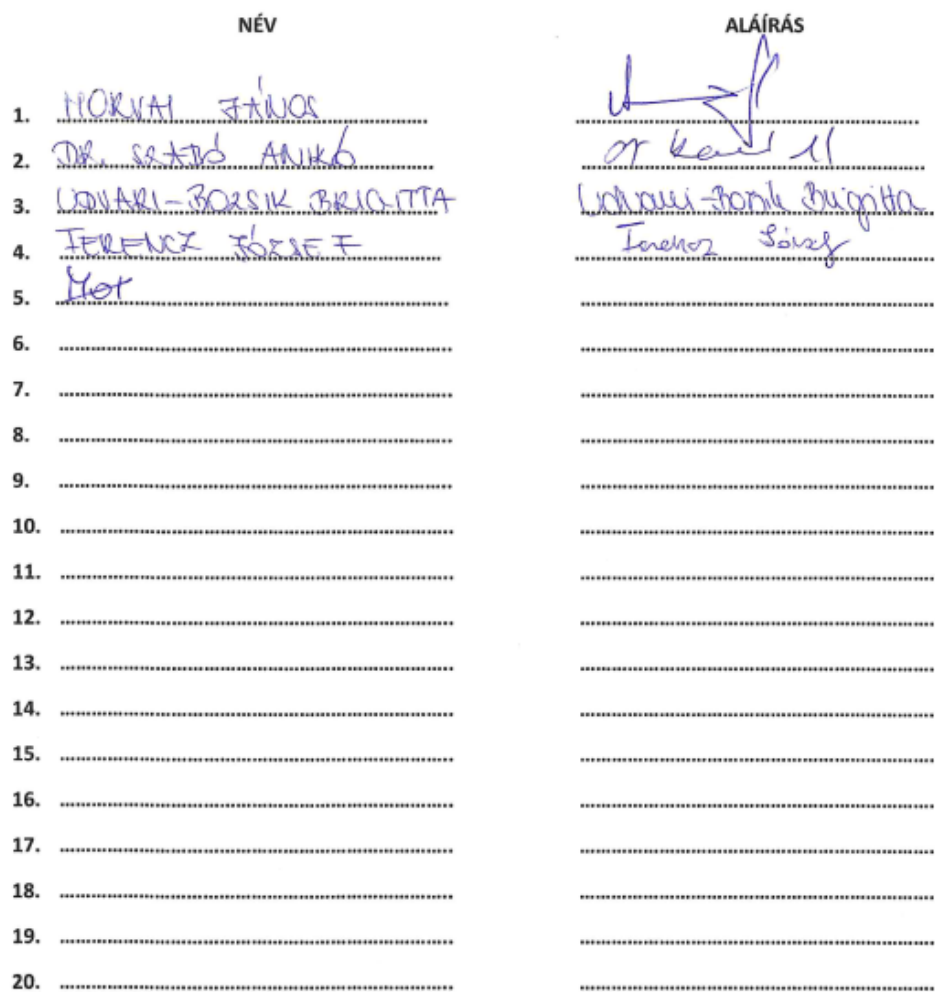 NÉV ALÁÍRÁS
1. HORVAI JÁNOS
2. DR. SZABÓ ANIKÓ
3. UDVARI-BOZSIK BRIGITTA Udvari-Bozsik Brigitta
4. FERENCZ JÓZSEF Ferencz József
5.
6.
7.
8.
9.
10.
11.
12.
13.
14.
15.
16.
17.
18.
19.
20.